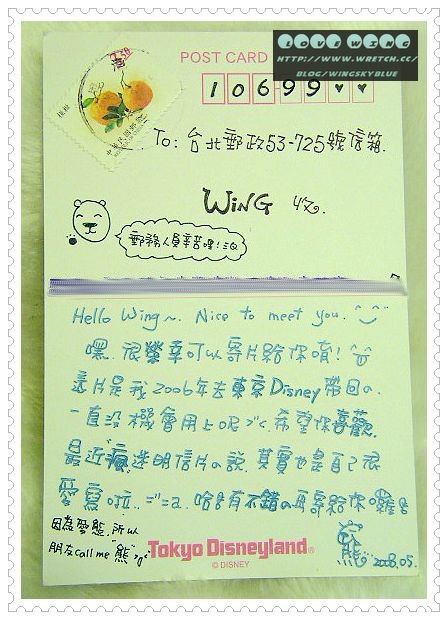 LOVE WING
HTTP://WWW.WRETCH.CC/
BLOG/WINGSKYBLUE
POST CARD
10699♥♥
To: 台北郵政53-725號信箱.
WiNG 收.
郵務人員辛苦囉!
Hello Wing~. Nice to meet you. ^_^
嘿. 很榮幸可以寄片給你唷!
這片是我2006年去東京Disney帶回の.
一直沒機會用上呢. 希望你喜歡.
最近瘋迷明信片の說. 其實也是自己很
愛寫啦..=''=a. 哈
因為愛熊, 所以
朋友call me "熊"
熊 2008.05.
Tokyo Disneyland®
© DISNEY